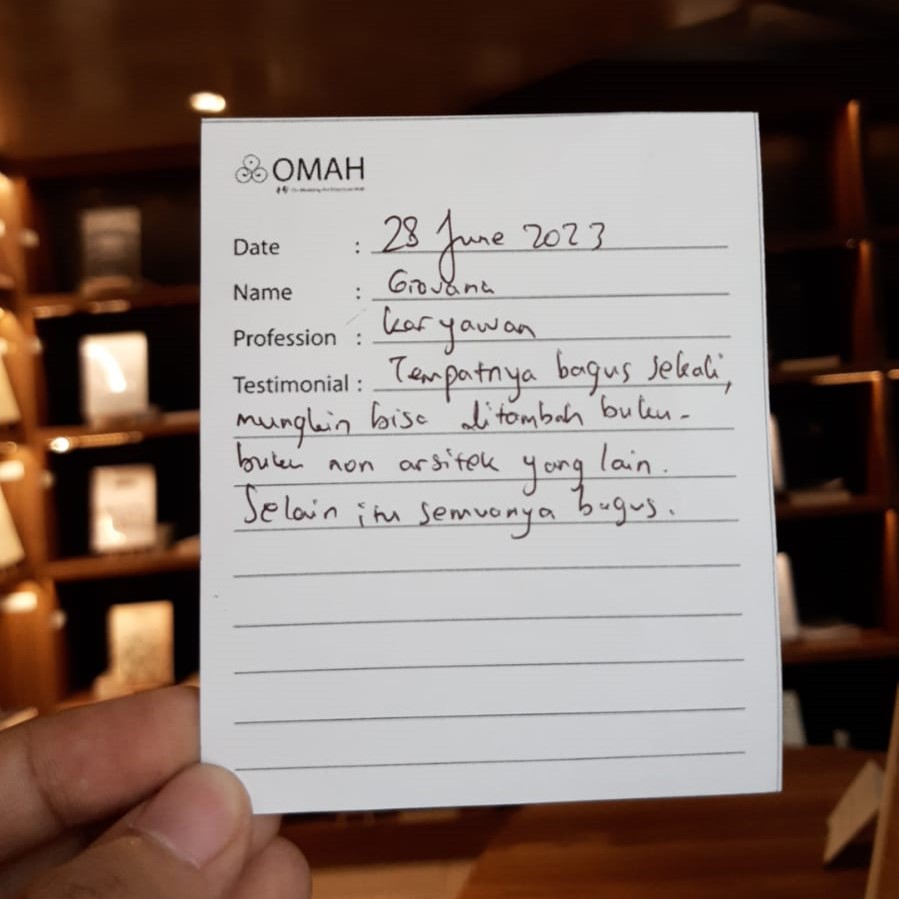 OMAH
Date : 28 June 2023
Name : Giovana
Profession : karyawan
Testimonial : Tempatnya bagus sekali,
mungkin bisa ditambah buku-
buku non arsitek yang lain.
Selain itu semuanya bagus.